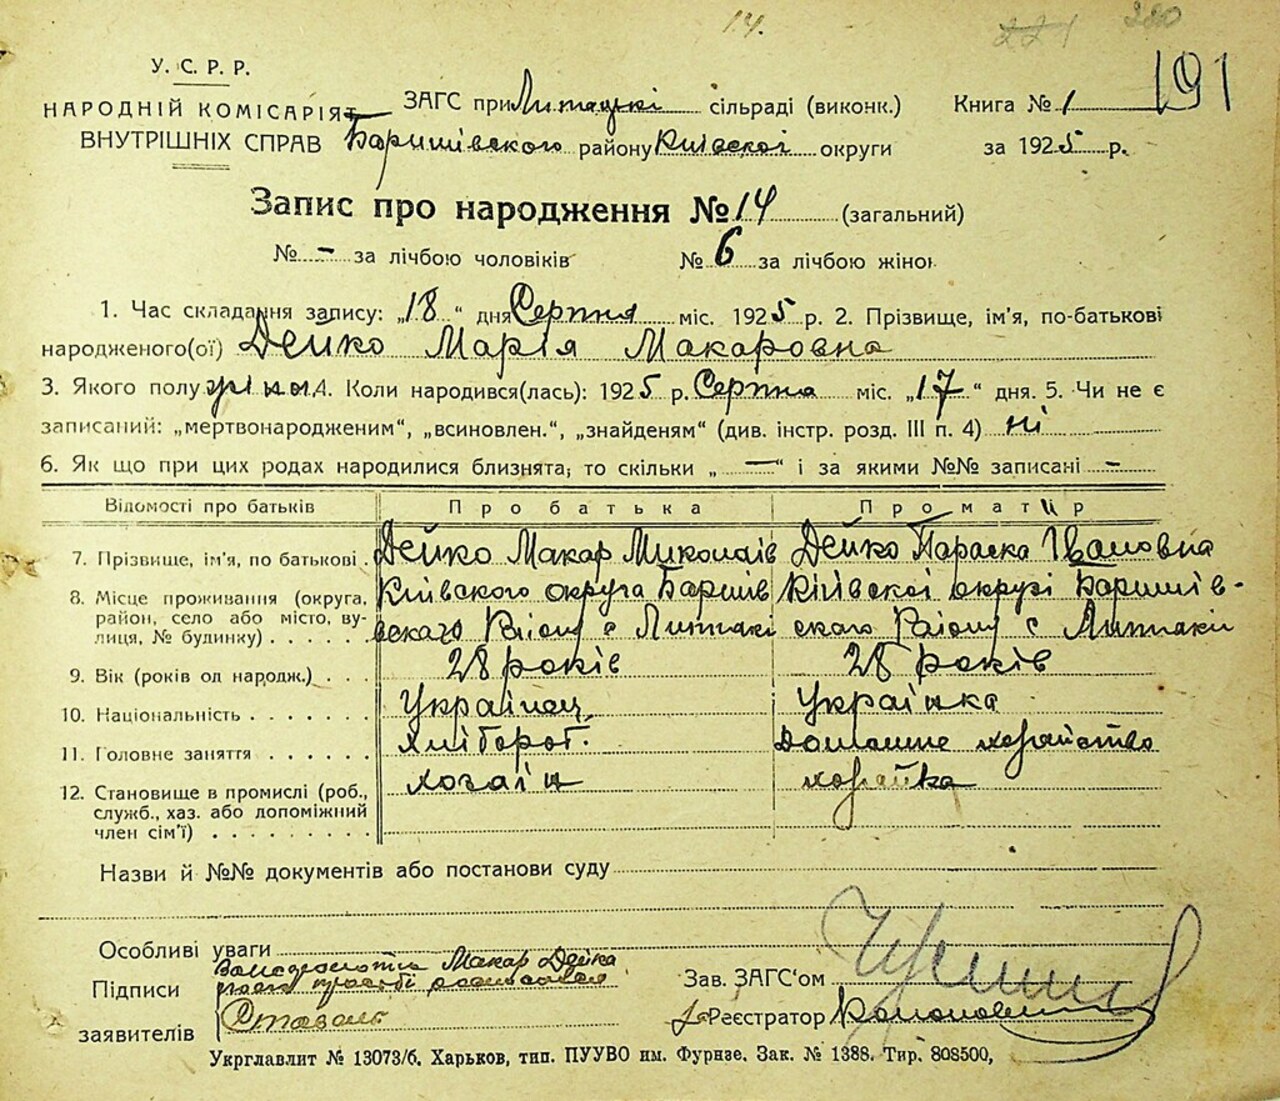 14.
221 280
У. С. Р. Р.
НАРОДНІЙ КОМІСАРІЯТ
ВНУТРІШНІХ СПРАВ
ЗАГС при Литацкі сільраді (виконк.) Книга № 1 191
Баришівского району Київскоі округи за 1925 р.
Запис про народження № 14 (загальний)
№ - за лічбою чоловіків № 6 за лічбою жінок
1. Час складання запису: „18" дня Серпня міс. 1925 р. 2. Прізвище, ім'я, по-батькові
народженого(ої) Дейко Марія Макаровна
3. Якого полу жіноч. 4. Коли народився(лась): 1925 р. Серпня міс. „17" дня. 5. Чи не є
записаний: „мертвонародженим", „всиновлен.", „знайденям" (див. інстр. розд. III п. 4) ні
6. Як що при цих родах народилися близнята, то скільки „—" і за якими №№ записані -
Відомості про батьків Про батька Про матір
7. Прізвище, ім'я, по батькові. Дейко Макар Миколаїв Дейко Параска Івановна
8. Місце проживання (округа, район, село або місто, вулиця, № будинку) Київского округа Баришів Київскоі окрузі Баришів-
вскаго Раіону с Литвякі скаго Раіону с Литвяки
9. Вік (років од народж.) 28 років 28 років
10. Національність Украінец Украінка
11. Головне заняття Хлібороб. Домашне хозяйство
12. Становище в промислі (роб., служб., хаз. або допоміжний член сім'ї) хозаін хозяйка
Назви й №№ документів або постанови суду
Особливі уваги
Підписи заявителів Макар Дейка
Зав. ЗАГС'ом
Реєстратор
Укрглавлит № 13073/б. Харьков, тип. ПУУВО им. Фурнзе. Зак. № 1388. Тир. 808500,